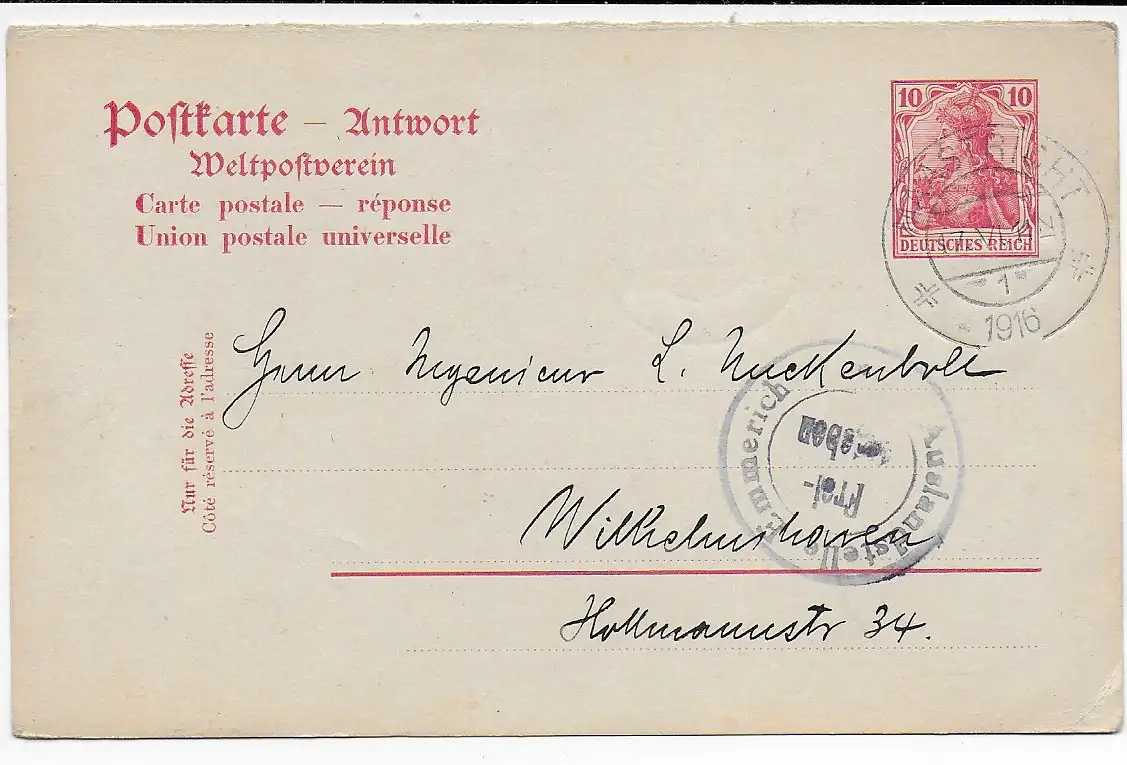 Postkarte – Antwort
Weltpostverein
Carte postale — réponse
Union postale universelle
10 10
DEUTSCHES REICH
MAASTRICHT
1
1916
Nur für die Adresse
Côté réservé à l'adresse
Herrn Ingenieur L. Nuckenboll
Wilhelmshaven
Hollmannstr 34.
Auslandstelle Emmerich
Frei-
gegeben